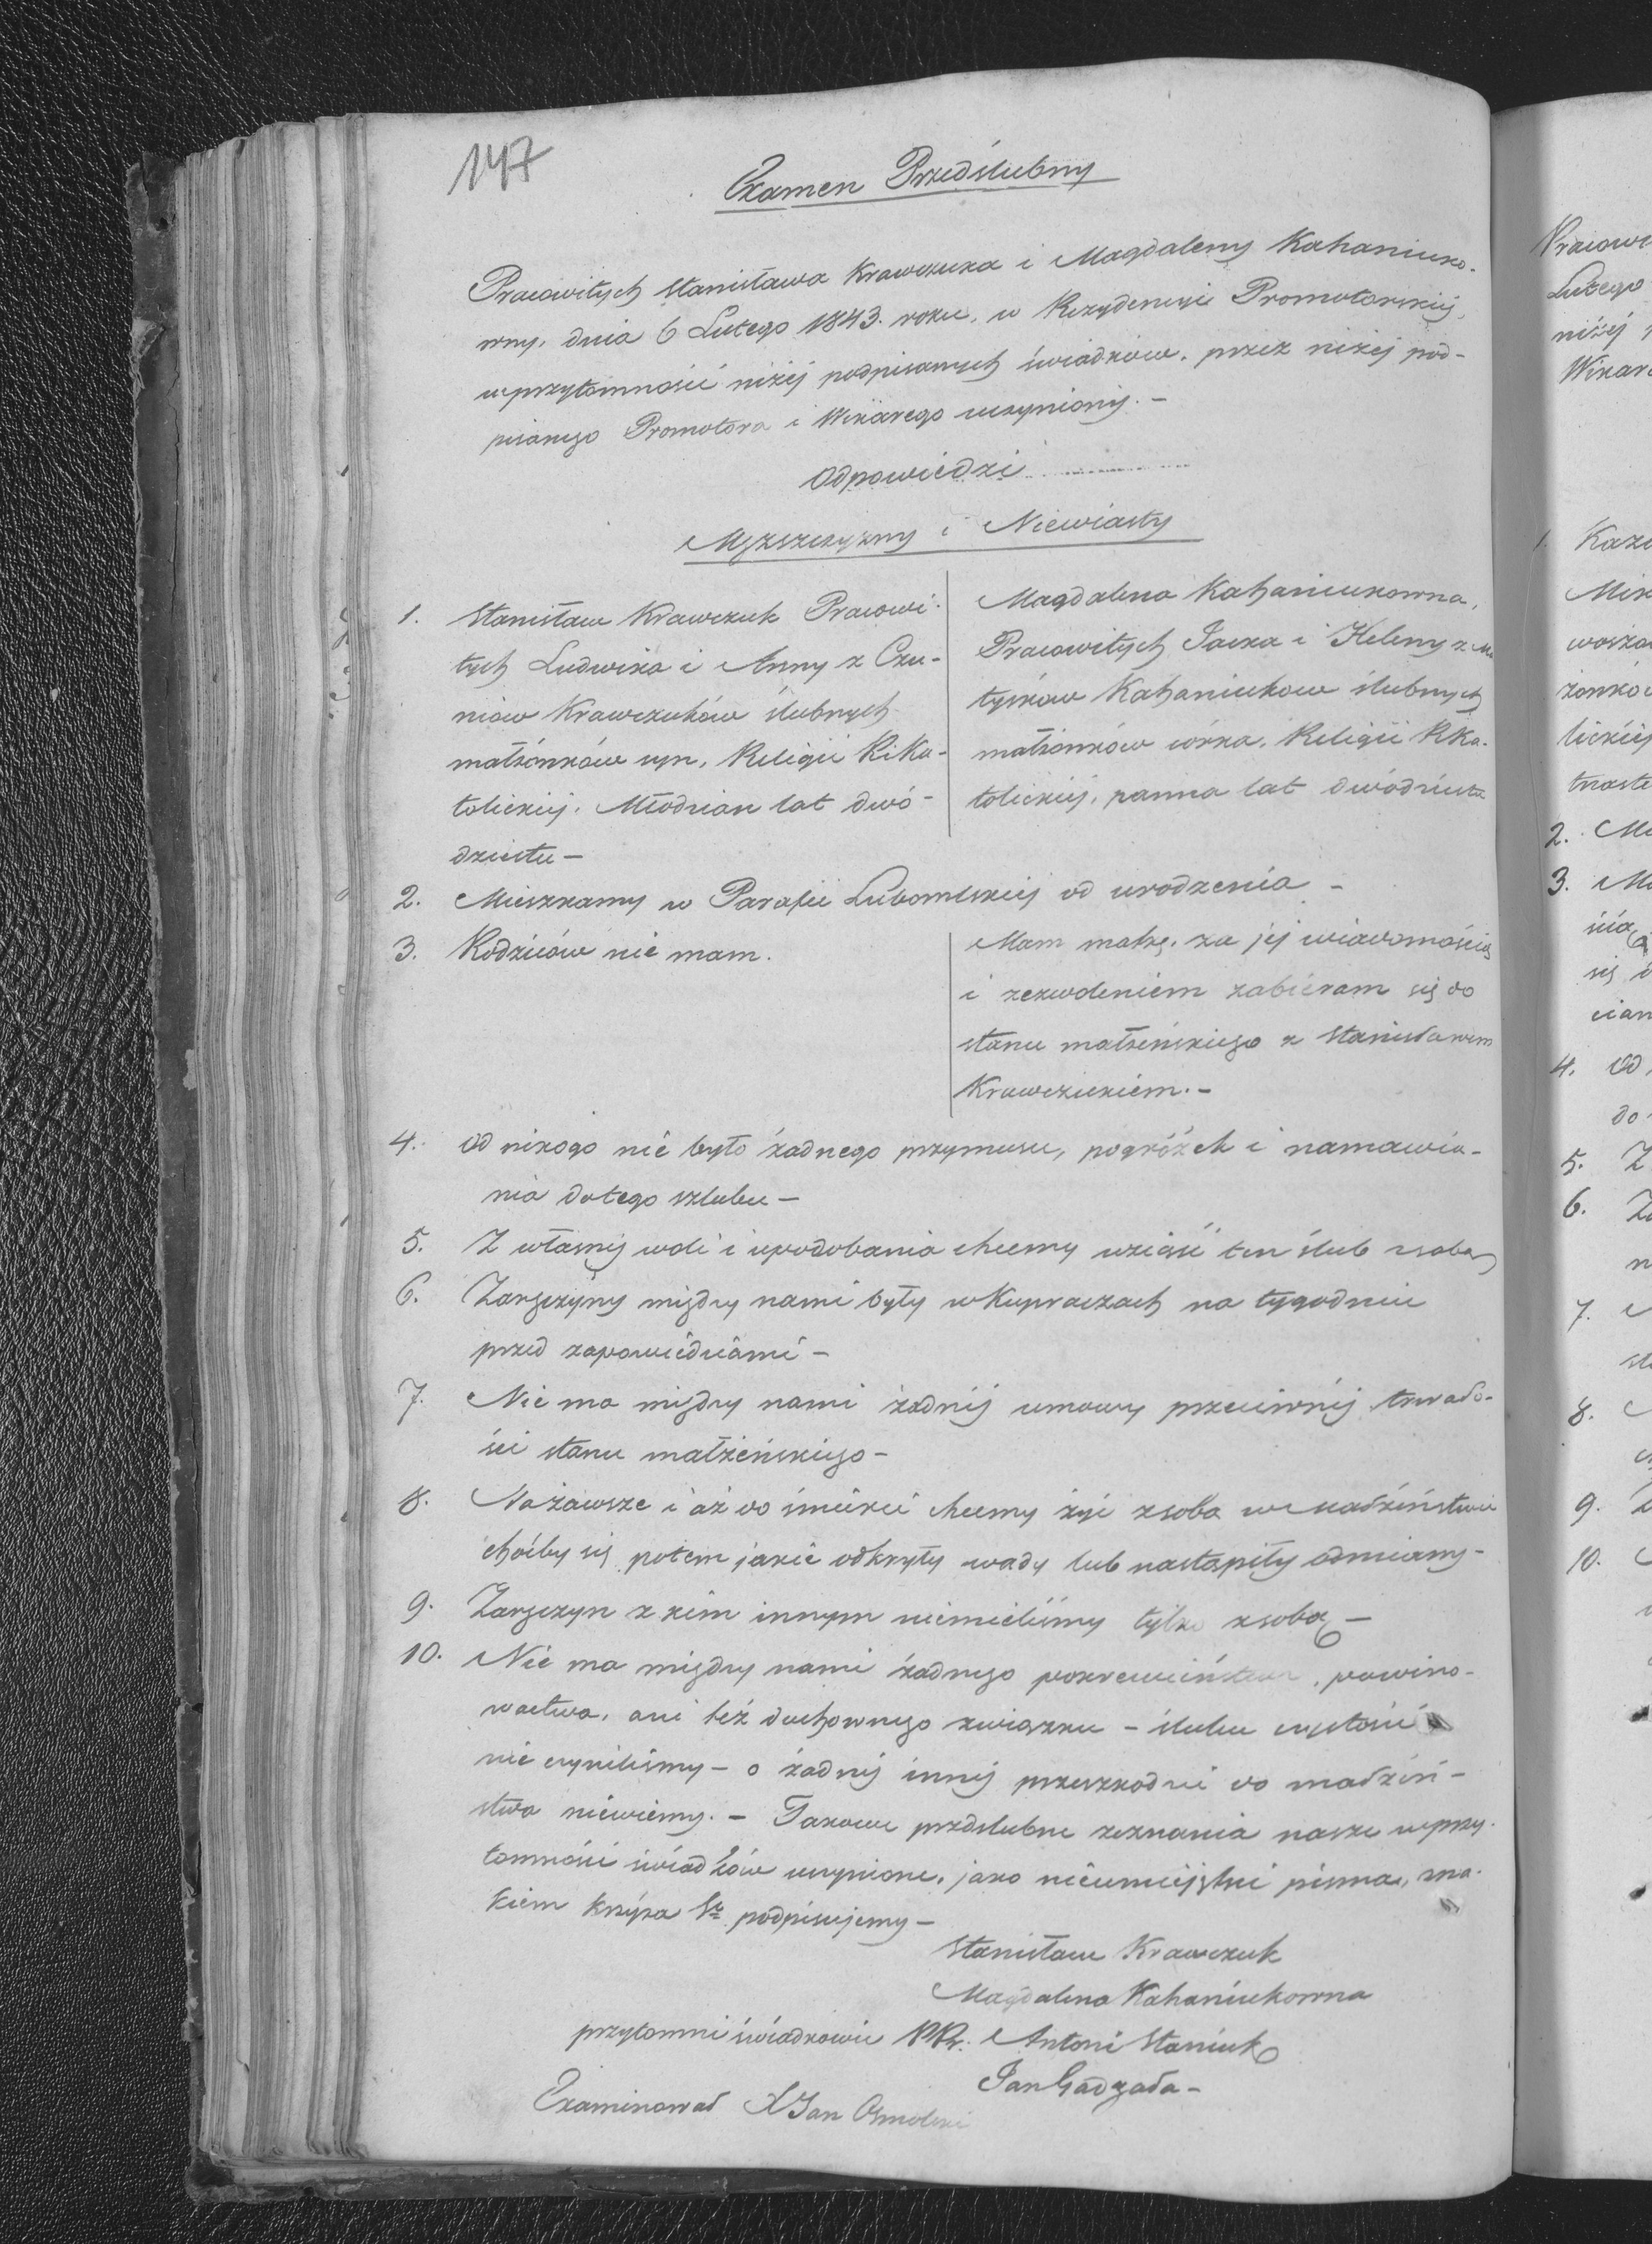 147
Examen Przedślubny
Pracowitych Stanisława Krawczuka i Magdaleny Kahaniuko-
wny, dnia 6 Lutego 1843. roku, w Rezydencyi Promotorskiej,
w przytomności niżej podpisanych świadków, przez niżej pod-
pisanego Promotora i Wikarego uczyniony. -
Odpowiedzi
Męzszczyzny i Niewiasty
1. Stanisław Krawczuk Pracowi-
tych Ludwika i Anny z Czu-
niów Krawczuków ślubnych
małżonków syn, Religii R: Ka-
tolickiej, Młodzian lat dwó-
dziestu -
Magdalena Kahaniukowna,
Pracowitych Jacka i Heleny z Ma
tysków Kahaniukow ślubnych
małżonków córka, Religii R Ka-
tolickiej, panna lat dwódziesta
2. Mieszkamy w Parafii Lubomlskiej od urodzenia -
3. Rodziców nie mam.
Mam matkę, za jej wiadomością
i zezwoleniem zabieram się do
stanu małżeńskiego z Stanisławem
Krawczukiem. -
4. Od nikogo nie było żadnego przymusu, pogróżek i namawia-
nia do tego szlubu -
5. Z własnej woli i upodobania chcemy wziąść ten ślub z sobą
6. Zaręczyny między nami były w Kupraczach na tygodniu
przed zapowiedziami -
7. Nie ma między nami żadnej umowy przeciwnej trwało-
ści stanu małżeńskiego -
8. Na zawsze i aż do śmierci chcemy żyć z sobą w małżeństwie
choćby się potem jakie odkryły wady lub nastąpiły odmiany -
9. Zaręczyn z kim innym niemieliśmy tylko z sobą -
10. Nie ma między nami żadnego pokrewieństwa, powino-
wactwa, ani też duchownego związku - ślubu czystości
nie czyniliśmy - o żadnej innej przeszkodzie do małżeń-
stwa niewiemy. - Takowe przdslubne zeznania nasze w przy-
tomności świadków uczynione, jako nieumiejętni pisma, zna-
kiem krzyża S: podpisujemy -
Stanisław Krawczuk
Magdalena Kahaniukowna
przytomni świadkowie PPr. Antoni Staniuk
Jan Gadzała -
Examinował X Jan Osmolski
Lutego
niżej
1. Kazi
2.
3.
4. Od
do
5. Z
6.
7.
8.
9.
10.